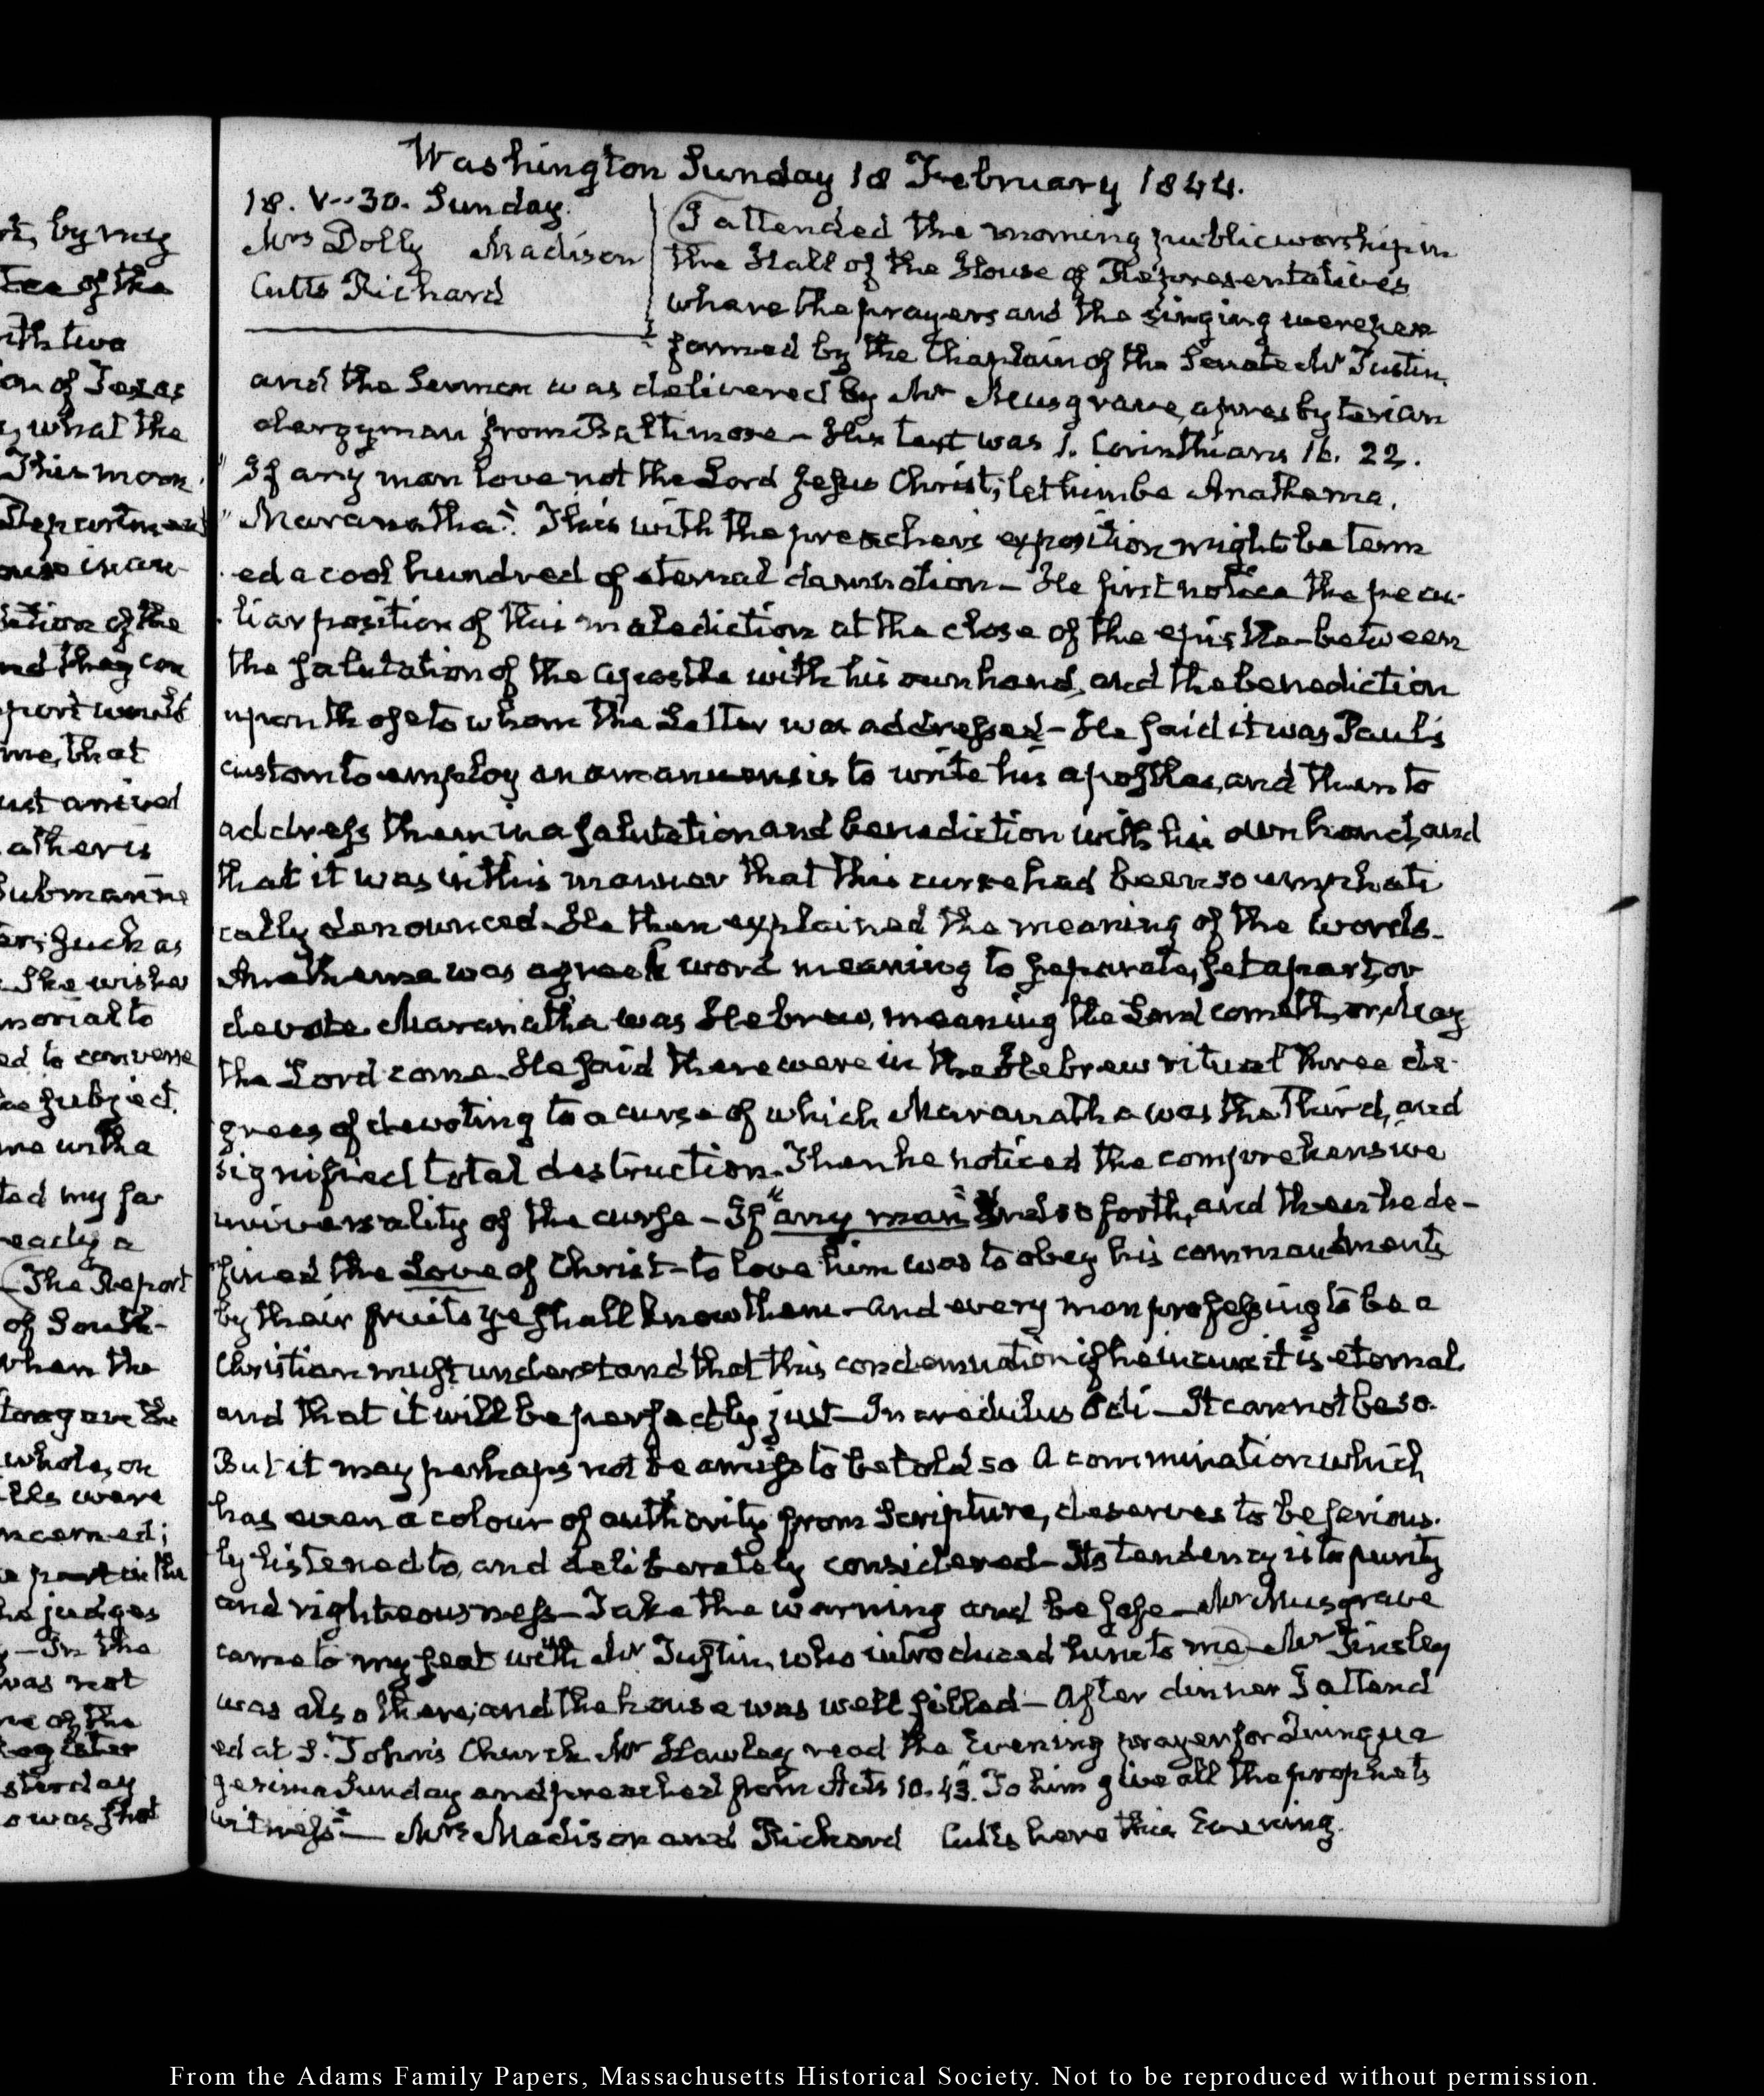 rt, by my
tee of the
ith two
on of Texas
, what the
This morn
Department
ouse is an
sition of the
nd they con
port would
me, that
ust arrived
ather is
submarine
er; such as
She wishes
morial to
ed to converse
he subject,
me with a
ted my fa
early a
The Report
of South-
when the
whole, on
ills were
ncerned;
e part in the
he judges
, — In the
was not
ne of the
sterday
o was shot
Washington Sunday 18 February 1844.
18. V--30. Sunday.
Mrs Dolly Madison
Cutts Richard
I attended the morning public worship in
the Hall of the House of Representatives
where the prayers and the singing were per
formed by the Chaplain of the Senate Mr Tustin,
and the Sermon was delivered by Mr Musgrave, a presbyterian
clergyman from Baltimore – His text was 1. Corinthians 16. 22.
" If any man love not the Lord Jesus Christ, let him be Anathema,
" Maranatha". This with the preacher's exposition might be term
ed a cool hundred of eternal damnation – He first notices the pecu-
liar position of this malediction at the close of the epistle – between
the salutation of the apostle with his own hand, and the benediction
upon those to whom the Letter was addressed – He said it was Paul's
custom to employ an amanuensis to write his apostles, and then to
address them in a salutation and benediction with his own hand, and
that it was in this manner that this curse had been so emphati
cally denounced. He then explained the meaning of the words.
Anathema was a greek word meaning to separate, set apart, or
devote. Maranatha was Hebrew, meaning the Lord cometh, or, May
the Lord come. He said there were in the Hebrew ritual three de-
grees of devoting to a curse of which Maranatha was the Third, and
signified total destruction. Then he noticed the comprehensive
universality of the curse – If "any man" and so forth, and then he de-
fined the Love of Christ – to love him was to obey his commandments
by their fruits ye shall know them – and every man professing to be a
Christian must understand that this condemnation if he incur it is eternal
and that it will be perfectly just – Incredulus Odi – It cannot be so.
But it may perhaps not be amiss to be told so A commination which
has even a colour of authority from Scripture, deserves to be serious-
ly listened to, and deliberately considered – Its tendency is to purity
and righteousness – Take the warning and be safe – Mr Musgrave
came to my seat with Mr Tustin, who introduced him to me – Mr Tinsley
was also there, and the house was well filled – After dinner I attend
ed at S. John's Church. Mr Hawley read the Evening prayer for Quinqua
gesima Sunday and preached from Acts 10. 43. "To him give all the prophets
witness" — Mrs Madison and Richard Cutts here this Evening.
From the Adams Family Papers, Massachusetts Historical Society. Not to be reproduced without permission.